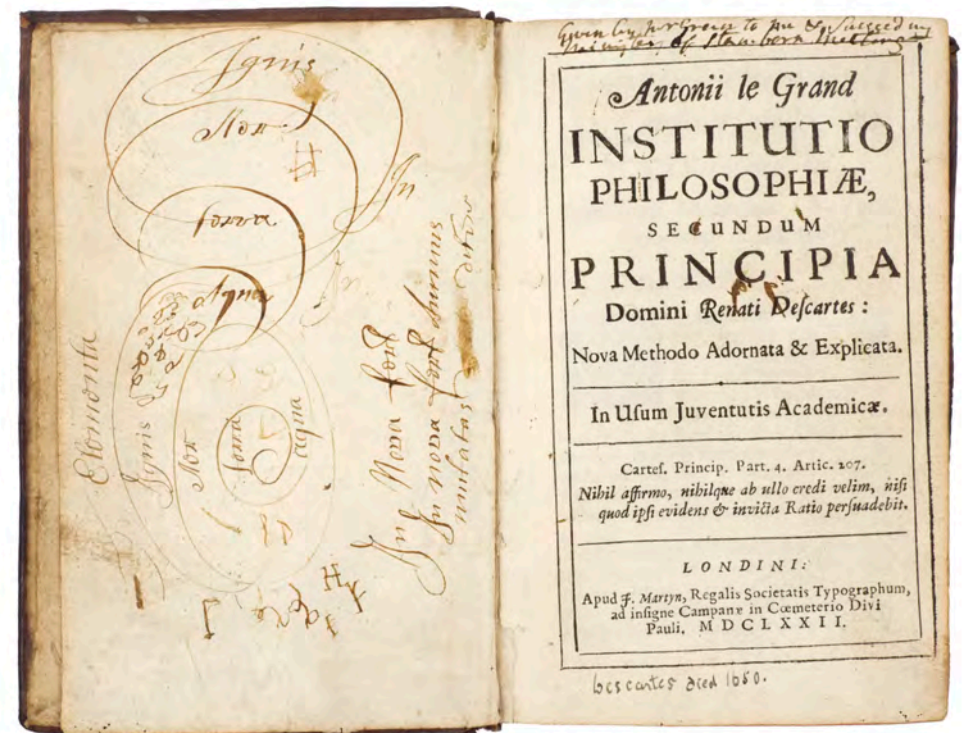 Ignis
Aer
In
terra
Aqua
Elementa
Ignis
Aer
terra
aqua
In Nova fert
In nova fert animus
mutatas
Given by to me &
of Meeting
Antonii le Grand
INSTITUTIO
PHILOSOPHIÆ,
SECUNDUM
PRINCIPIA
Domini Renati Deſcartes :
Nova Methodo Adornata & Explicata.
In Uſum Juventutis Academicæ.
Carteſ. Princip. Part. 4. Artic. 207.
Nihil affirmo, nihilque ab ullo credi velim, niſi
quod ipſi evidens & invicta Ratio perſuadebit.
LONDINI:
Apud J. Martyn, Regalis Societatis Typographum,
ad inſigne Campanæ in Cœmeterio Divi
Pauli, MDCLXXII.
Descartes died 1650.